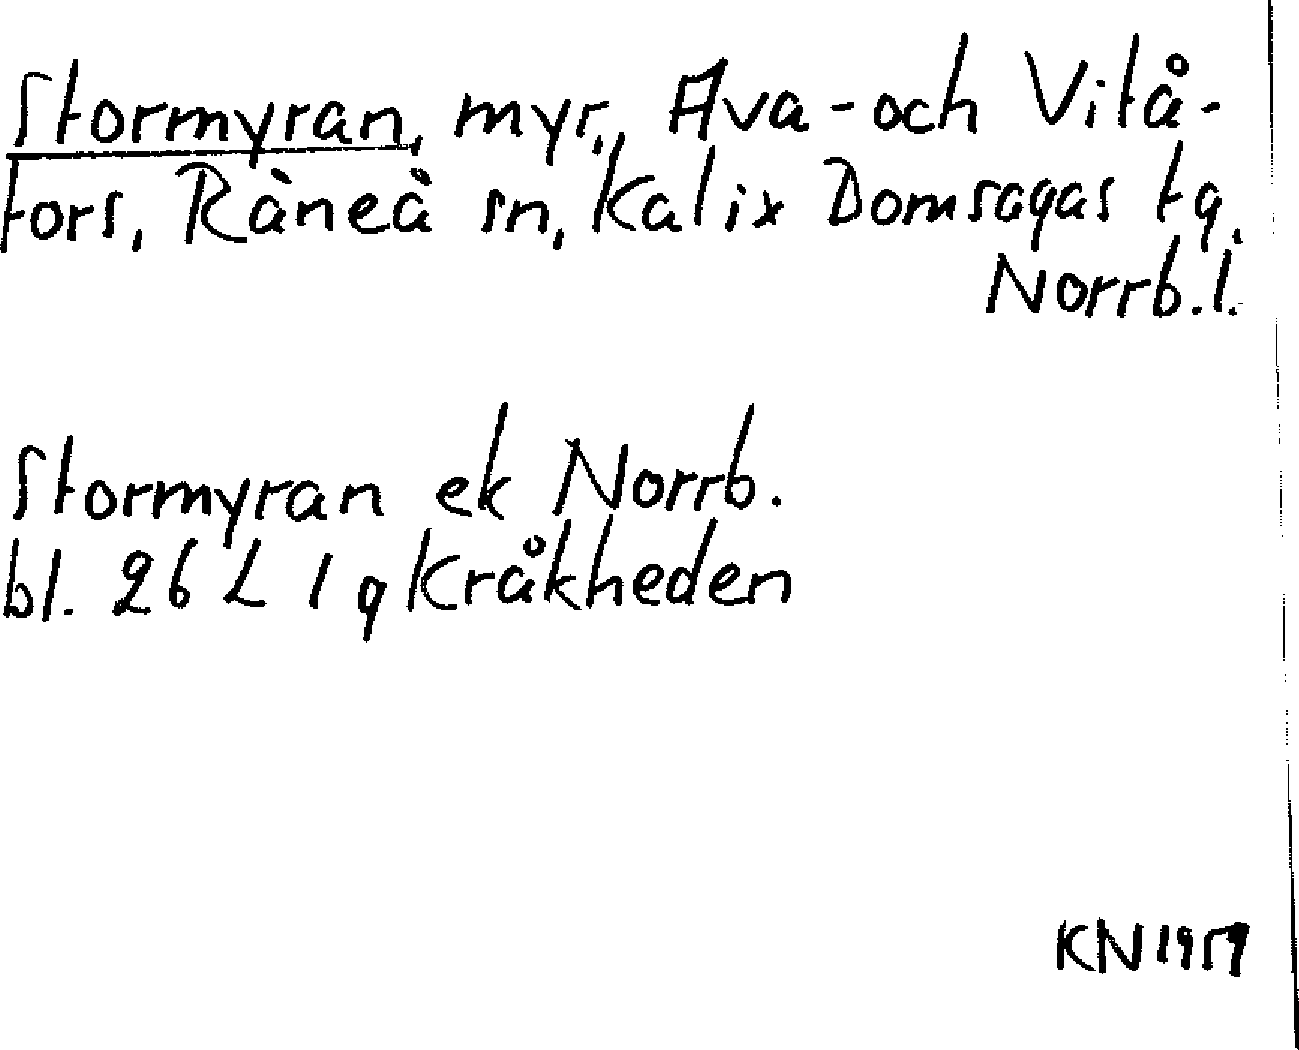 Stormyran, myr, Ava- och Vitå-
fors, Råneå sn, Kalix Domsagas tg.
Norrb. l.
Stormyran ek Norrb.
bl. 26 L 1 g Kråkheden
KN